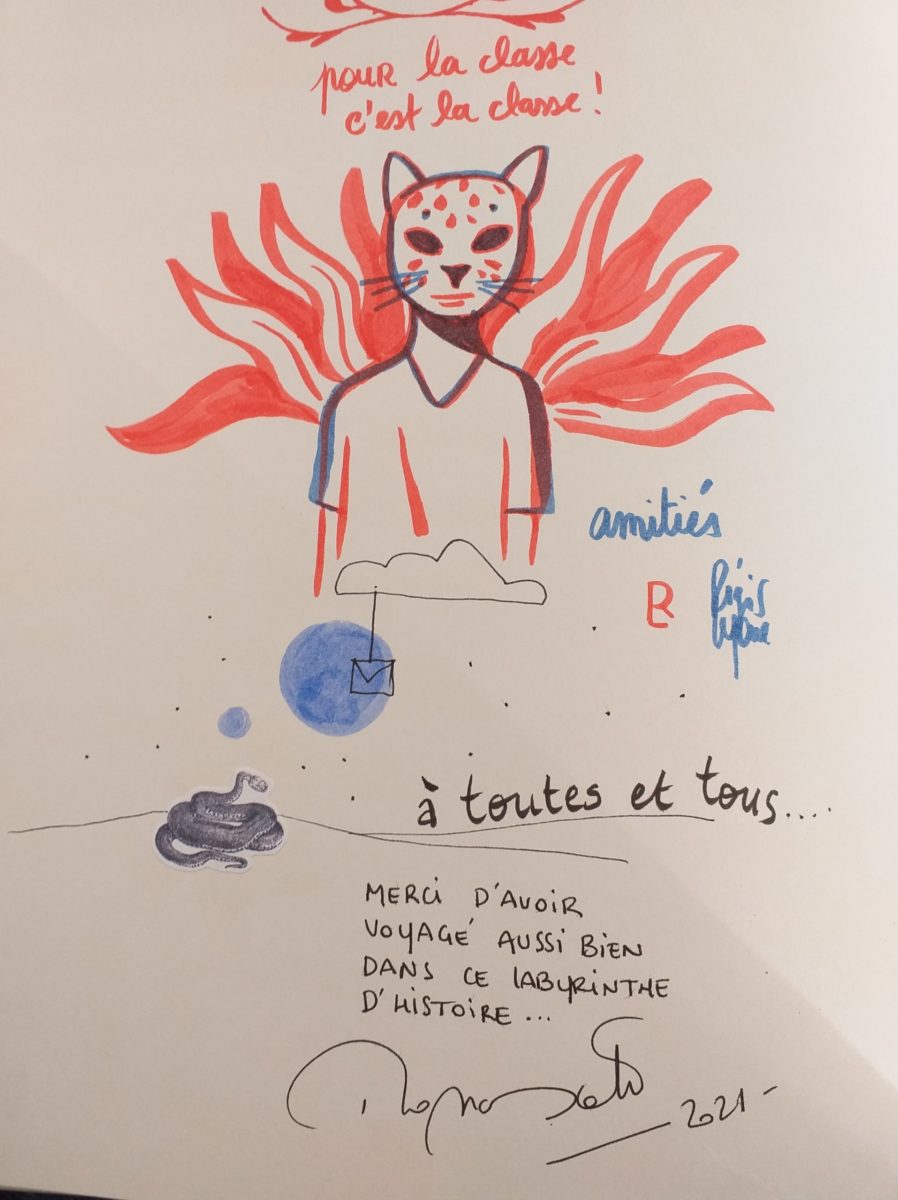 pour la classe
c'est la classe !
amitiés
R Régis
à toutes et tous....
MERCI D'AVOIR
VOYAGÉ AUSSI BIEN
DANS CE LABYRINTHE
D'HISTOIRE...
2021-